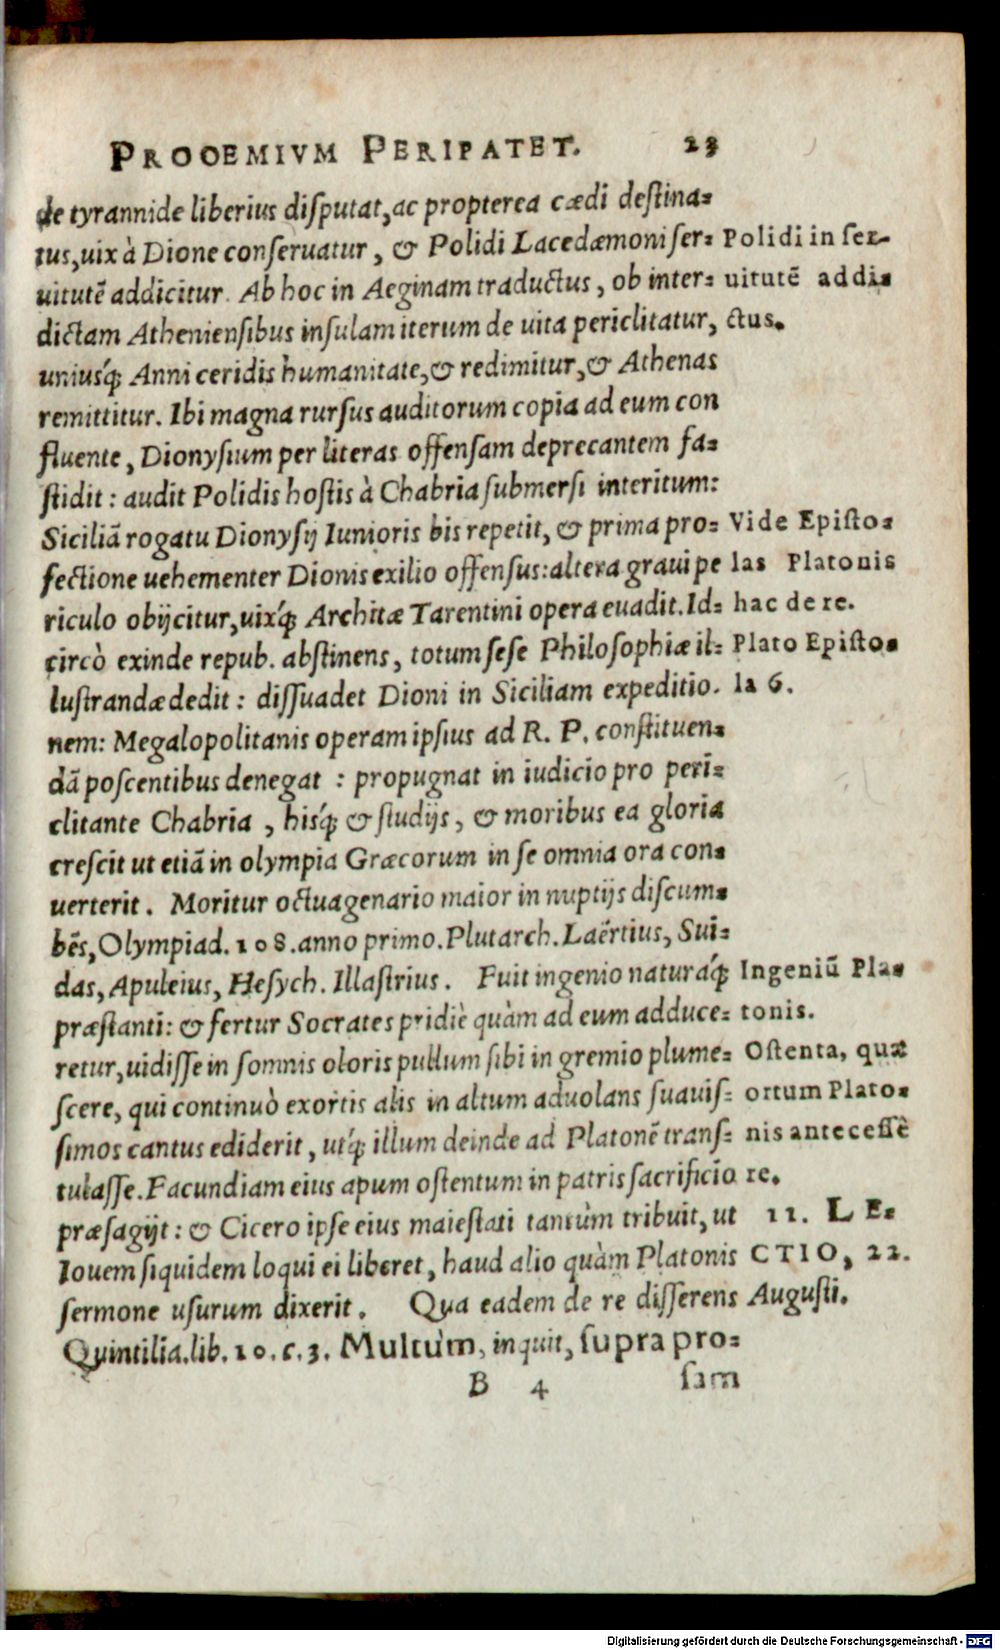 PROOEMIVM PERIPATET. 23
de tyrannide liberius diſputat, ac propterea cædi deſtina⸗
tus, uix à Dione conſeruatur, & Polidi Lacedæmoni ſer⸗
uitutē addicitur. Ab hoc in Aeginam traductus, ob inter⸗
dictam Athenienſibus inſulam iterum de uita periclitatur,
uniusq́; Anniceridis humanitate, & redimitur, & Athenas
remittitur. Ibi magna rurſus auditorum copia ad eum con
fluente, Dionyſium per literas offenſam deprecantem fa⸗
ſtidit : audit Polidis hoſtis à Chabria ſubmerſi interitum:
Siciliā rogatu Dionyſij Iunioris bis repetit, & prima pro⸗
fectione uehementer Dionis exilio offenſus: altera graui pe
riculo obijcitur, uixq́; Architæ Tarentini opera euadit. Id⸗
circò exinde repub. abſtinens, totum ſeſe Philoſophiæ il⸗
luſtrandæ dedit : diſſuadet Dioni in Siciliam expeditio.
nem: Megalopolitanis operam ipſius ad R. P. conſtituen⸗
dā poſcentibus denegat : propugnat in iudicio pro peri⸗
clitante Chabria , hisq́; & ſtudijs, & moribus ea gloria
creſcit ut etiā in olympia Græcorum in ſe omnia ora con⸗
uerterit. Moritur octuagenario maior in nuptijs diſcum⸗
bēs, Olympiad. 108. anno primo. Plutarch. Laërtius, Sui⸗
das, Apuleius, Heſych. Illuſtrius. Fuit ingenio naturaq́;
præſtanti: & fertur Socrates pridiè quàm ad eum adduce⸗
retur, uidiſſe in ſomnis oloris pullum ſibi in gremio plume⸗
ſcere, qui continuò exortis alis in altum aduolans ſuauiſ⸗
ſimos cantus ediderit, utq́; illum deinde ad Platonē tranſ⸗
tulaſſe. Facundiam eius apum oſtentum in patris ſacrificio
præſagijt : & Cicero ipſe eius maieſtati tantùm tribuit, ut
Iouem ſiquidem loqui ei liberet, haud alio quàm Platonis
ſermone uſurum dixerit. Qua eadem de re diſſerens
Quintilia. lib. 10. c. 3. Multùm, inquit, ſupra pro⸗
B 4 ſam
Polidi in ſer⸗
uitutē addi⸗
ctus.
Vide Epiſto⸗
las Platonis
hac de re.
Plato Epiſto⸗
la 6.
Ingeniū Pla⸗
tonis.
Oſtenta, quæ
ortum Plato⸗
nis anteceſſè
re.
11. LE⸗
CTIO, 22.
Auguſti.
Digitalisierung gefördert durch die Deutsche Forschungsgemeinschaft - DFG